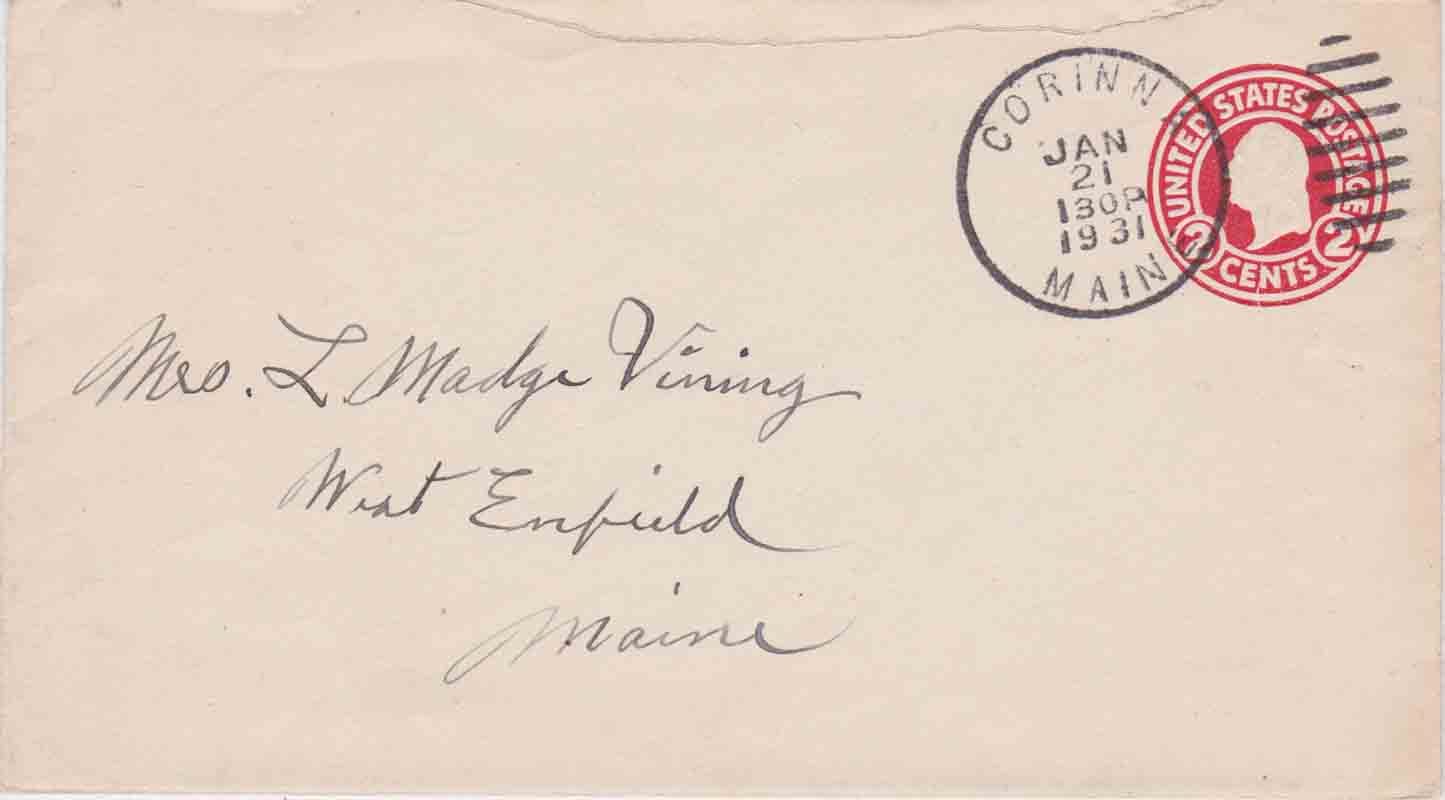 CORINN
JAN
21
130P
1931
MAIN
UNITED STATES POSTAGE
2 CENTS 2
Mrs. L. Madge Vining
West Enfield
Maine